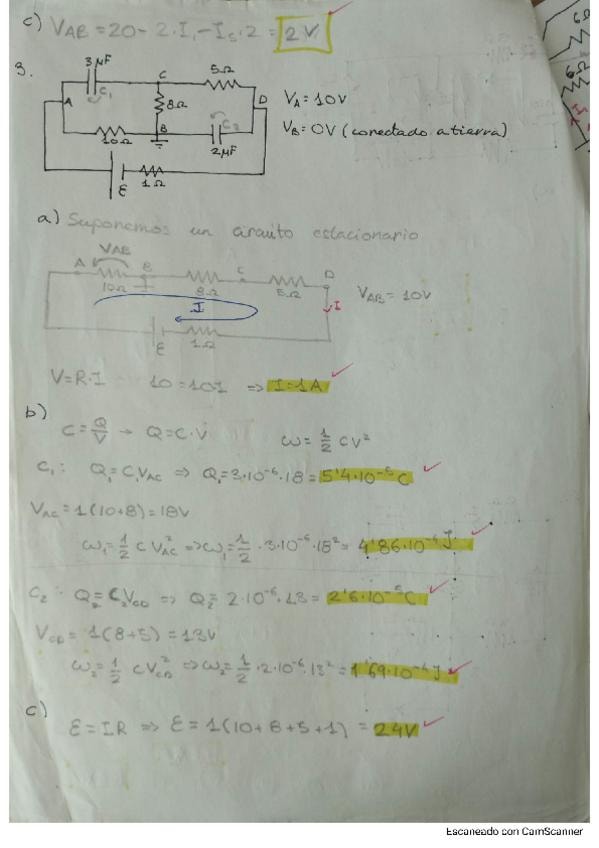 c) V_AB = 20 - 2·I₁ - I₅·2 = 2V
3.
3μF
C₁
C
5Ω
A
8Ω
D
V_A = 10V
10Ω
B
C₂
2μF
V_B = 0V (conectado a tierra)
ε
1Ω
a) Suponemos un circuito estacionario
V_AB
A
B
C
D
10Ω
8Ω
5Ω
I
I
V_AB = 10V
ε
1Ω
V = R·I 10 = 10I ⇒ I = 1A
b)
C = Q/V → Q = C·V ω = 1/2 CV²
C₁: Q₁ = C₁V_AC ⇒ Q₁ = 3·10⁻⁶·18 = 5'4·10⁻⁵C
V_AC = 1(10+8) = 18V
ω₁ = 1/2 C V_AC² ⇒ ω₁ = 1/2 · 3·10⁻⁶·18² = 4'86·10⁻⁴J
C₂: Q₂ = C₂V_CD ⇒ Q₂ = 2·10⁻⁶·13 = 2'6·10⁻⁵C
V_CD = 1(8+5) = 13V
ω₂ = 1/2 C V_CD² ⇒ ω₂ = 1/2 · 2·10⁻⁶·13² = 1'69·10⁻⁴J
c)
ε = IR ⇒ ε = 1(10+8+5+1) = 24V
Escaneado con CamScanner